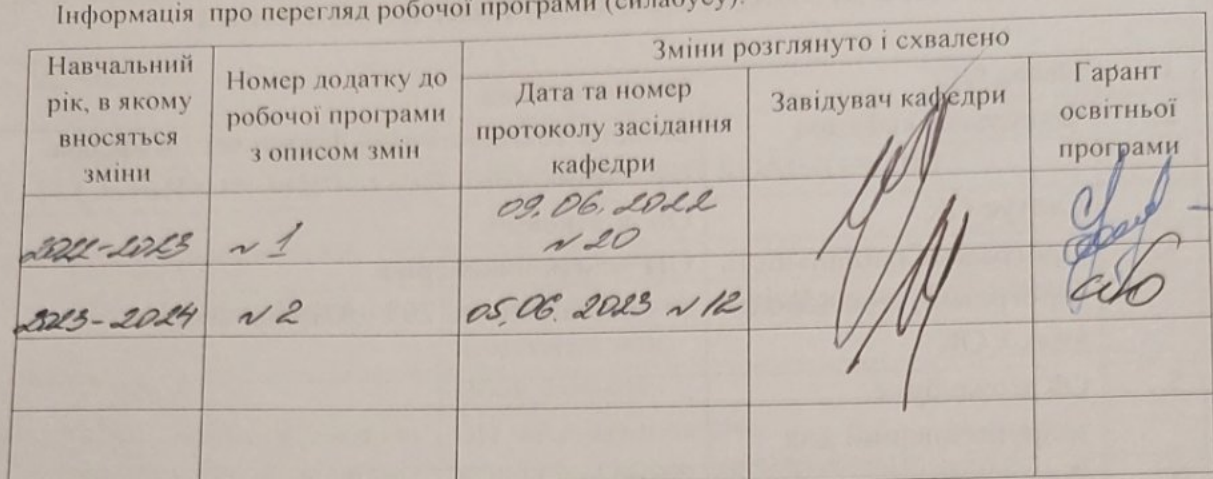 Інформація про перегляд робочої програми (силабусу).
Зміни розглянуто і схвалено
Навчальний
рік, в якому
вносяться
зміни
Номер додатку до
робочої програми
з описом змін
Дата та номер
протоколу засідання
кафедри
Завідувач кафедри
Гарант
освітньої
програми
2022-2023
№ 1
09.06.2022
№ 20
2023-2024
№ 2
05.06.2023 № 12